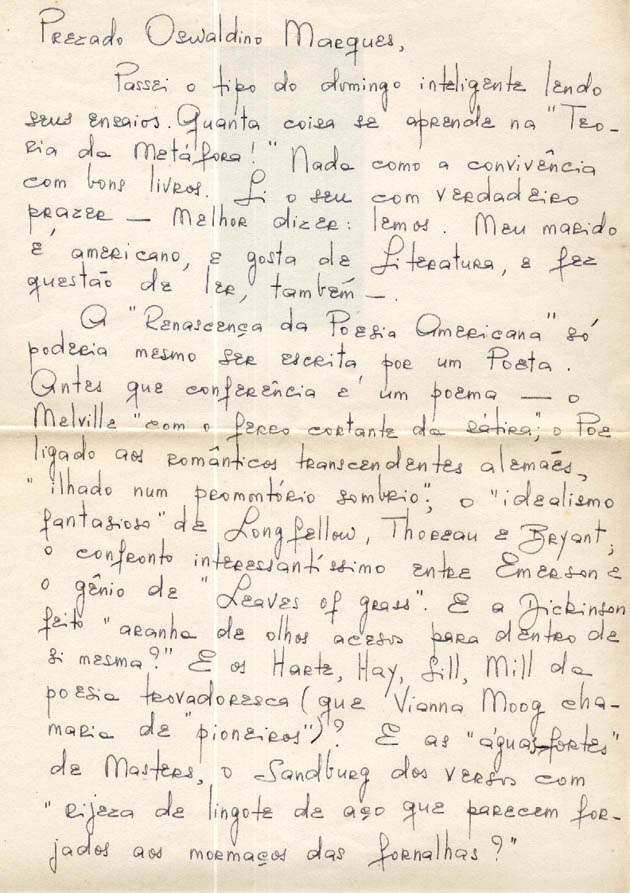 Prezado Oswaldino Marques,
Passei o tipo do domingo inteligente lendo
seus ensaios. Quanta coisa se aprende na "Teo-
ria da Metáfora!" Nada como a convivência
com bons livros. Li o seu com verdadeiro
prazer — melhor dizer: lemos. Meu marido
é americano, e gosta de Literatura, e fez
questão de ler, também —.
A "Renascença da Poesia Americana" só
poderia mesmo ser escrita por um Poeta.
Antes que conferência é um poema — o
Melville "com o ferro cortante da sátira"; o Poe
ligado aos românticos transcendentes alemães,
"ilhado num promontório sombrio"; o "idealismo
fantasioso" de Longfellow, Thoreau e Bryant;
o confronto interessantíssimo entre Emerson e
o gênio de "Leaves of grass". E a Dickinson
feito "aranha de olhos acesos para dentro de
si mesma?" E os Harte, Hay, Sill, Mill da
poesia trovadoresca (que Vianna Moog cha-
maria de "pioneiros")? E as "águas-fortes"
de Masters, o Sandburg dos versos com
"rijeza de lingote de aço que parecem for-
jados aos mormaços das fornalhas?"